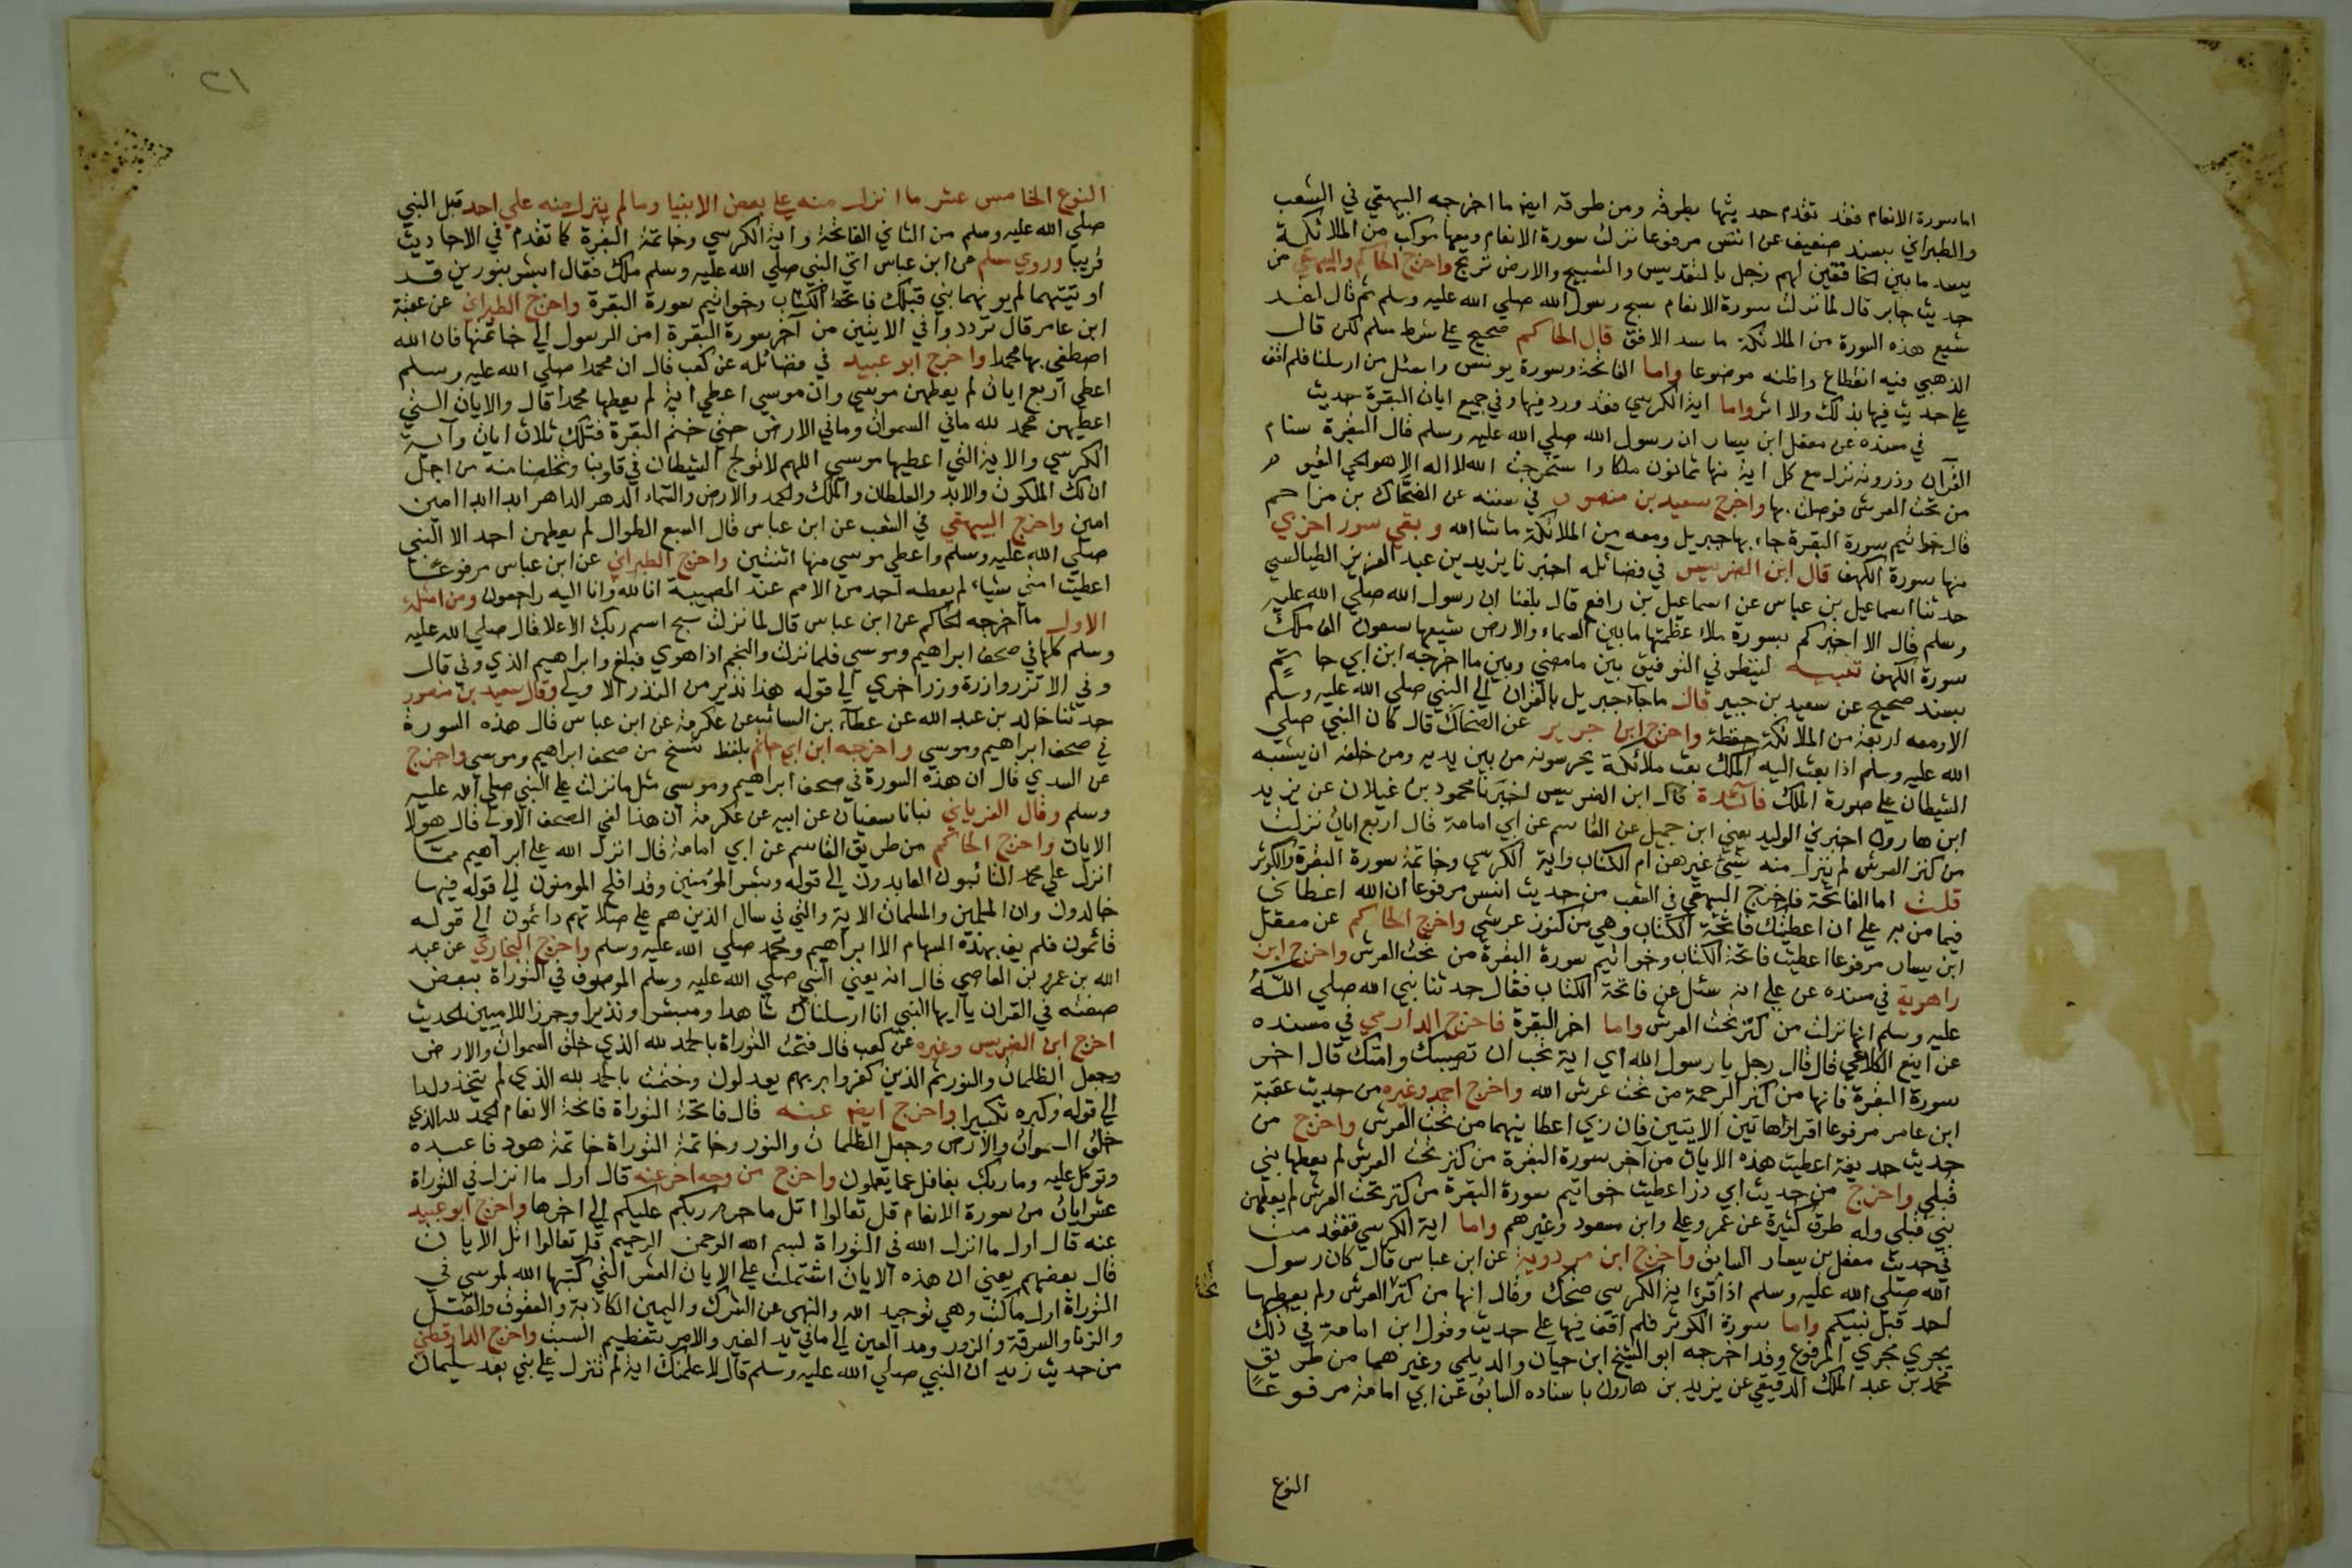 اما سورة الانعام فقد تقدم حديثها بطرقه ومن طرقه ايض ما اخرجه البيهقي في الشعب
والطبراني بسند ضعيف عن انس مرفوعا نزلت سورة الانعام ومعها موكب من الملائكة
يسد ما بين الخافقين لهم زجل بالتقديس والتسبيح والارض ترتج واخرج الحاكم والبيهقي من
حديث جابر قال لما نزلت سورة الانعام سبح رسول الله صلي الله عليه وسلم ثم قال لقد
شيع هذه السورة من الملائكة ما سد الافق قال الحاكم صحيح علي شرط مسلم لكن قال
الذهبي فيه انقطاع واظنه موضوعا واما الفاتحة وسورة يونس واسئل من ارسلنا فلم اقف
علي حديث فيها بذلك ولا اثر واما اية الكرسي فقد ورد فيها وفي جميع ايات البقرة حديث
في مسنده عن معقل ابن يسار ان رسول الله صلي الله عليه وسلم قال البقرة سنام
القرآن وذروته نزل مع كل اية منها ثمانون ملكا واستخرجت الله لا اله الا هو الحي القيوم
من تحت العرش فوصلت بها واخرج سعيد بن منصور في سننه عن الضحاك بن مزاحم
قال خواتيم سورة البقرة جاء بها جبريل ومعه من الملائكة ما شا الله وبقي سور اخري
منها سورة الكهف قال ابن الضريس في فضائله اخبرنا يزيد بن عبد العزيز الطيالسي
حدثنا اسماعيل بن عياس عن اسماعيل بن رافع قال بلغنا ان رسول الله صلي الله عليه
وسلم قال الا اخبركم بسورة ملاء عظمتها ما بين السماء والارض شيعها سبعون الف ملك
سورة الكهف تنبيه لينظر في التوفيق بين ما مضي وبين ما اخرجه ابن ابي حاتم
بسند صحيح عن سعيد بن جبير قال ما جاء جبريل بالقران الي النبي صلي الله عليه وسلم
الا ومعه اربعة من الملائكة حفظة واخرج ابن جرير عن الضحاك قال كان النبي صلي
الله عليه وسلم اذا بعث اليه الملك بعث ملائكة يحرسونه من بين يديه ومن خلفه ان يتشبه
الشيطان علي صورة الملك فائدة قال ابن الضريس اخبرنا محمود بن غيلان عن يزيد
ابن هارون اخبرني الوليد يعني ابن جميل عن القاسم عن ابي امامة قال اربع ايات نزلت
من كنز العرش لم ينزل منه شيئ غيرهن ام الكتاب واية الكرسي وخاتمة سورة البقرة والكوثر
قلت اما الفاتحة فاخرج البيهقي في الشعب من حديث انس مرفوعا ان الله اعطاني
فيما من به علي ان اعطيتك فاتحة الكتاب وهي من كنوز عرشي واخرج الحاكم عن معقل
ابن يسار مرفوعا اعطيت فاتحة الكتاب وخواتيم سورة البقرة من تحت العرش واخرج ابن
راهوية في مسنده عن علي انه سئل عن فاتحة الكتاب فقال حدثنا نبي الله صلي الله
عليه وسلم انها نزلت من كنز تحت العرش واما اخر البقرة فاخرج الدارمي في مسنده
عن ايفع الكلاعي قال قال رجل يا رسول الله اي اية تحب ان تصيبك وامتك قال اخر
سورة البقرة فانها من كنز الرحمة من تحت عرش الله واخرج احمد وغيره من حديث عقبة
ابن عامر مرفوعا اقراوا هاتين الايتين فان ربي اعطانيهما من تحت العرش واخرج من
حديث حديفة اعطيت هذه الايات من آخر سورة البقرة من كنز تحت العرش لم يعطها نبي
قبلي واخرج من حديث ابي ذر اعطيت خواتيم سورة البقرة من كنز تحت العرش لم يعطهن
نبي قبلي وله طرق كثيرة عن عمر وعلي وابن مسعود وغيرهم واما اية الكرسي فتقدمت
في حديث معقل بن يسار السابق واخرج ابن مردوية عن ابن عباس قال كان رسول
الله صلي الله عليه وسلم اذا قرا اية الكرسي ضحك وقال انها من كنز العرش ولم يعطها
تحت
احد قبل نبيكم واما سورة الكوثر فلم اقف فيها علي حديث وقول ابن امامة في ذلك
يجري مجري المرفوع وقد اخرجه ابو الشيخ ابن حيان والديلمي وغيرهما من طريق
محمد بن عبد الملك الدقيقي عن يزيد بن هارون باسناده السابق عن ابي امامة مرفوعا
النوع
٢١
النوع الخامس عشر ما انزل منه علي بعض الانبيا وما لم ينزل منه علي احد قبل النبي
صلي الله عليه وسلم من الثاني الفاتحة واية الكرسي وخاتمة البقرة كما تقدم في الاحاديث
قريبا وروي مسلم عن ابن عباس اتي النبي صلي الله عليه وسلم ملك فقال ابشر بنورين قد
اوتيتهما لم يوتهما نبي قبلك فاتحة الكتاب وخواتيم سورة البقرة واخرج الطبراني عن عقبة
ابن عامر قال ترددوا في الايتين من آخر سورة البقرة امن الرسول الي خاتمتها فان الله
اصطفي بها محمدا واخرج ابو عبيد في فضائله عن كعب قال ان محمدا صلي الله عليه وسلم
اعطي اربع ايات لم يعطهن موسي وان موسي اعطي اية لم يعطها محمدا قال والايات التي
اعطيهن محمد لله ماني السموات وماني الارض حتي ختم البقرة فتلك ثلاث ايات وآية
الكرسي والاية التي اعطيها موسي اللهم لا تولج الشيطان في قلوبنا وتخلصنا منه من اجل
ان لك الملكوت والابد والسلطان والملك والحمد والارض والسماء الدهر الداهر ابدا ابدا امين
امين واخرج البيهقي في الشعب عن ابن عباس قال السبع الطوال لم يعطهن احد الا النبي
صلي الله عليه وسلم واعطي موسي منها اثنتين واخرج الطبراني عن ابن عباس مرفوعا
اعطيت امتي شياء لم يعطه احد من الامم عند المصيبة انا لله وانا اليه راجعون ومن امثلة
الاول ما اخرجه الحاكم عن ابن عباس قال لما نزلت سبح اسم ربك الاعلا قال صلي الله عليه
وسلم كلها في صحف ابراهيم وموسي فلما نزلت والنجم اذا هوي فبلغ وابراهيم الذي وفي قال
وفي الا تزر وازرة وزر اخري الي قوله هذا نذير من النذر الاولي وقال سعيد بن منصور
حدثنا خالد بن عبد الله عن عطاء بن السائب عن عكرمة عن ابن عباس قال هذه السورة
في صحف ابراهيم وموسي واخرجه ابن ابي حاتم بلفظ نسخ من صحف ابراهيم وموسي واخرج
عن السدي قال ان هذه السورة في صحف ابراهيم وموسي مثل ما نزلت علي النبي صلي الله عليه
وسلم وقال الفريابي نبانا سفيان عن ابيه عن عكرمة ان هذا لفي الصحف الاولي قال هولا
الايات واخرج الحاكم من طريق القاسم عن ابي امامة قال انزل الله علي ابراهيم مما
انزل علي محمد التائبون العابدون الي قوله وبشر المؤمنين وقد افلح المومنون الي قوله فيها
خالدون وان المسلمين والمسلمات الاية والتي في سال الذين هم علي صلاتهم دائمون الي قوله
قائمون فلم يف بهذه السهام الا ابراهيم ومحمد صلي الله عليه وسلم واخرج البخاري عن عبد
الله بن عمرو بن العاصي قال انه يعني النبي صلي الله عليه وسلم الموصوف في التوراة ببعض
صفته في القران يا ايها النبي انا ارسلناك شاهدا ومبشرا ونذيرا وحرزا للاميين الحديث
اخرج ابن الضريس وغيره عن كعب قال فتحت التوراة بالحمد لله الذي خلق السموات والارض
وجعل الظلمات والنور ثم الذين كفروا بربهم يعدلون وختمت بالحمد لله الذي لم يتخذ ولدا
الي قوله وكبره تكبيرا واخرج ايض عنه قال فاتحة التوراة فاتحة الانعام الحمد لله الذي
خلق السموات والارض وجعل الظلمات والنور وخاتمة التوراة خاتمة هود فاعبده
وتوكل عليه وما ربك بغافل عما يعملون واخرج من وجه اخر عنه قال اول ما انزل في التوراة
عشر ايات من سورة الانعام قل تعالوا اتل ما حرم ربكم عليكم الي اخرها واخرج ابو عبيد
عنه قال اول ما انزل الله في التوراة بسم الله الرحمن الرحيم قل تعالوا اتل الايات
قال بعضهم يعني ان هذه الايات اشتملت علي الايات العشر التي كتبها الله لموسي في
التوراة اول ما كتب وهي توحيد الله والنهي عن الشرك واليمين الكاذبة والعقوق والقتل
والزنا والسرقة والزور ومد العين الي ماني يد الغير والامر بتعظيم السبت واخرج الدارقطني
من حديث زيد ان النبي صلي الله عليه وسلم قال لا علمنك اية لم تنزل علي نبي بعد سليمان